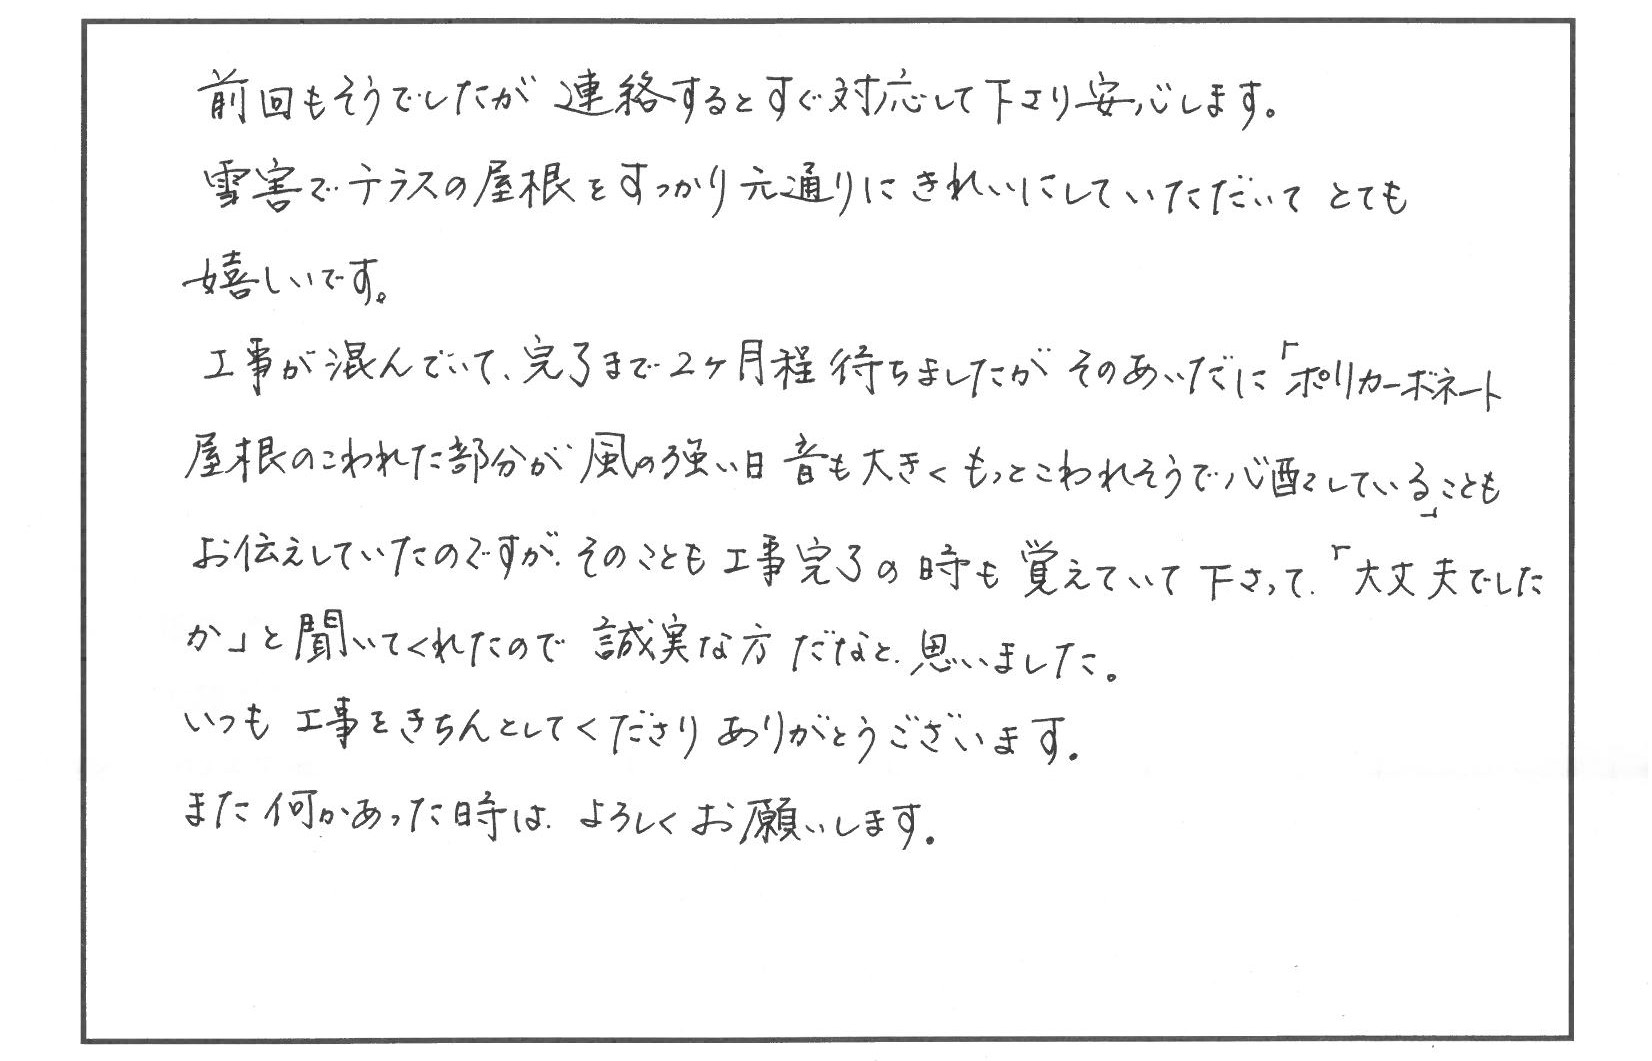 前回もそうでしたが連絡するとすぐ対応して下さり安心します。
雪害でテラスの屋根をすっかり元通りにきれいにしていただいてとても
嬉しいです。
工事が混んでいて、完了まで2ヶ月程待ちましたがそのあいだに「ポリカーボネート
屋根のこわれた部分が風の強い日音も大きくもっとこわれそうで心配している」ことも
お伝えしていたのですが、そのことも工事完了の時も覚えていて下さって、「大丈夫でした
か」と聞いてくれたので誠実な方だなと、思いました。
いつも工事をきちんとしてくださりありがとうございます。
また何かあった時は、よろしくお願いします。